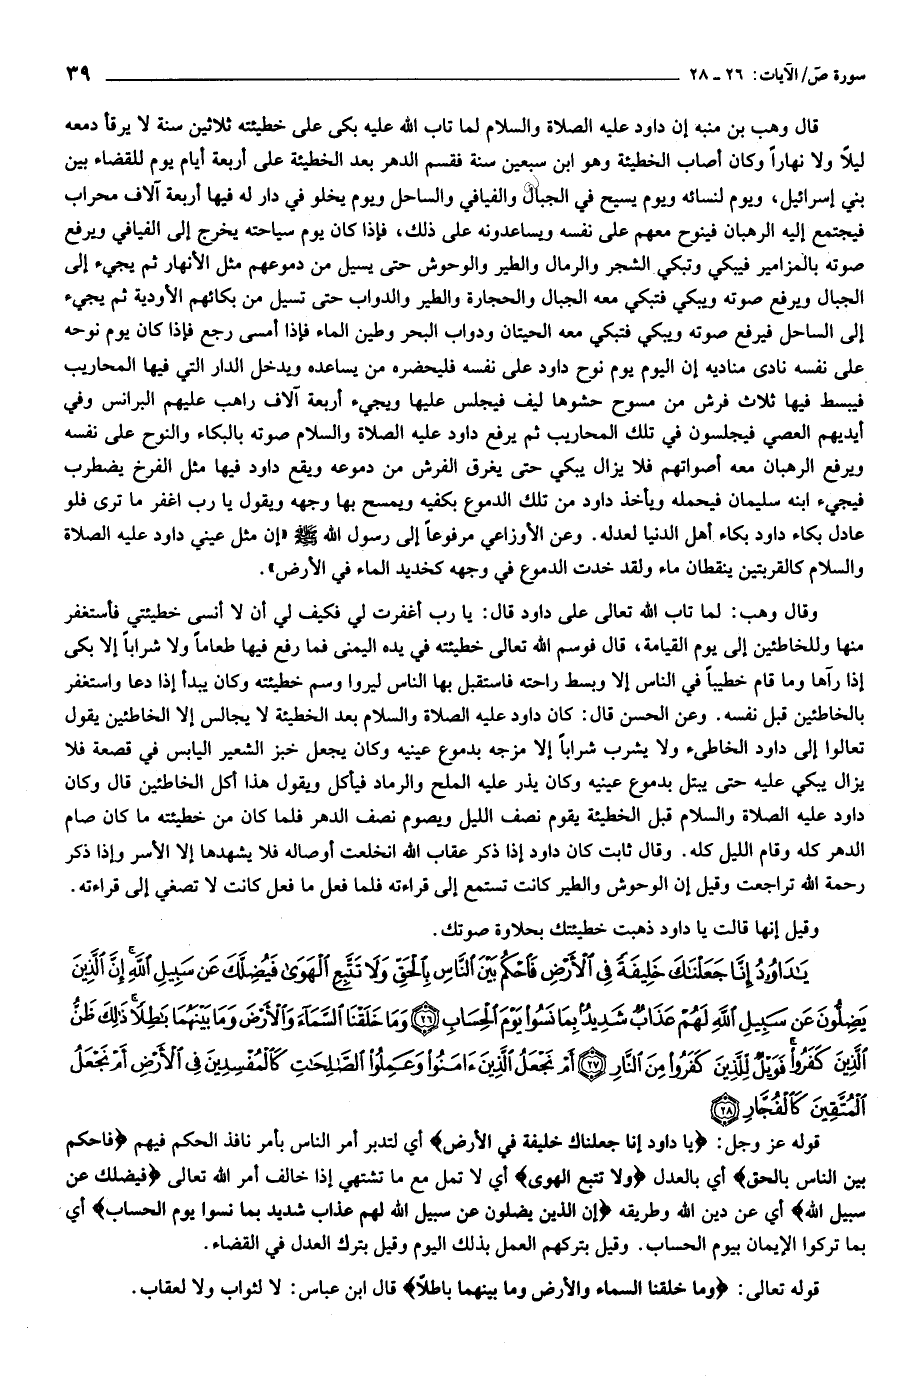 سورة صۤ/ الآيات: ٢٦ - ٢٨ ٣٩
قال وهب بن منبه إن داود عليه الصلاة والسلام لما تاب الله عليه بكى على خطيئته ثلاثين سنة لا يرقأ دمعه
ليلاً ولا نهاراً وكان أصاب الخطيئة وهو ابن سبعين سنة فقسم الدهر بعد الخطيئة على أربعة أيام يوم للقضاء بين
بني إسرائيل، ويوم لنسائه ويوم يسيح في الجبال والفيافي والساحل ويوم يخلو في دار له فيها أربعة آلاف محراب
فيجتمع إليه الرهبان فينوح معهم على نفسه ويساعدونه على ذلك، فإذا كان يوم سياحته يخرج إلى الفيافي ويرفع
صوته بالمزامير فيبكي وتبكي الشجر والرمال والطير والوحوش حتى يسيل من دموعهم مثل الأنهار ثم يجيء إلى
الجبال ويرفع صوته ويبكي فتبكي معه الجبال والحجارة والطير والدواب حتى تسيل من بكائهم الأودية ثم يجيء
إلى الساحل فيرفع صوته ويبكي فتبكي معه الحيتان ودواب البحر وطين الماء فإذا أمسى رجع فإذا كان يوم نوحه
على نفسه نادى مناديه إن اليوم يوم نوح داود على نفسه فليحضره من يساعده ويدخل الدار التي فيها المحاريب
فيبسط فيها ثلاث فرش من مسوح حشوها ليف فيجلس عليها ويجيء أربعة آلاف راهب عليهم البرانس وفي
أيديهم العصي فيجلسون في تلك المحاريب ثم يرفع داود عليه الصلاة والسلام صوته بالبكاء والنوح على نفسه
ويرفع الرهبان معه أصواتهم فلا يزال يبكي حتى يغرق الفرش من دموعه ويقع داود فيها مثل الفرخ يضطرب
فيجيء ابنه سليمان فيحمله ويأخذ داود من تلك الدموع بكفيه ويمسح بها وجهه ويقول يا رب اغفر ما ترى فلو
عادل بكاء داود بكاء أهل الدنيا لعدله. وعن الأوزاعي مرفوعاً إلى رسول الله ﷺ «إن مثل عيني داود عليه الصلاة
والسلام كالقربتين ينقطان ماء ولقد خدت الدموع في وجهه كخديد الماء في الأرض».
وقال وهب: لما تاب الله تعالى على داود قال: يا رب أغفرت لي فكيف لي أن لا أنسى خطيئتي فأستغفر
منها وللخاطئين إلى يوم القيامة، قال فوسم الله تعالى خطيئته في يده اليمنى فما رفع فيها طعاماً ولا شراباً إلا بكى
إذا رآها وما قام خطيباً في الناس إلا وبسط راحته فاستقبل بها الناس ليروا وسم خطيئته وكان يبدأ إذا دعا واستغفر
بالخاطئين قبل نفسه. وعن الحسن قال: كان داود عليه الصلاة والسلام بعد الخطيئة لا يجالس إلا الخاطئين يقول
تعالوا إلى داود الخاطىء ولا يشرب شراباً إلا مزجه بدموع عينيه وكان يجعل خبز الشعير اليابس في قصعة فلا
يزال يبكي عليه حتى يبتل بدموع عينيه وكان يذر عليه الملح والرماد فيأكل ويقول هذا أكل الخاطئين قال وكان
داود عليه الصلاة والسلام قبل الخطيئة يقوم نصف الليل ويصوم نصف الدهر فلما كان من خطيئته ما كان صام
الدهر كله وقام الليل كله. وقال ثابت كان داود إذا ذكر عقاب الله انخلعت أوصاله فلا يشهدها إلا الأسر وإذا ذكر
رحمة الله تراجعت وقيل إن الوحوش والطير كانت تستمع إلى قراءته فلما فعل ما فعل كانت لا تصغي إلى قراءته.
وقيل إنها قالت يا داود ذهبت خطيئتك بحلاوة صوتك.
يَٰدَاوُۥدُ إِنَّا جَعَلْنَٰكَ خَلِيفَةً فِى ٱلْأَرْضِ فَٱحْكُم بَيْنَ ٱلنَّاسِ بِٱلْحَقِّ وَلَا تَتَّبِعِ ٱلْهَوَىٰ فَيُضِلَّكَ عَن سَبِيلِ ٱللَّهِ ۚ إِنَّ ٱلَّذِينَ
يَضِلُّونَ عَن سَبِيلِ ٱللَّهِ لَهُمْ عَذَابٌ شَدِيدٌۢ بِمَا نَسُوا۟ يَوْمَ ٱلْحِسَابِ ﴿٢٦﴾ وَمَا خَلَقْنَا ٱلسَّمَآءَ وَٱلْأَرْضَ وَمَا بَيْنَهُمَا بَٰطِلًا ۚ ذَٰلِكَ ظَنُّ
ٱلَّذِينَ كَفَرُوا۟ ۚ فَوَيْلٌ لِّلَّذِينَ كَفَرُوا۟ مِنَ ٱلنَّارِ ﴿٢٧﴾ أَمْ نَجْعَلُ ٱلَّذِينَ ءَامَنُوا۟ وَعَمِلُوا۟ ٱلصَّٰلِحَٰتِ كَٱلْمُفْسِدِينَ فِى ٱلْأَرْضِ أَمْ نَجْعَلُ
ٱلْمُتَّقِينَ كَٱلْفُجَّارِ ﴿٢٨﴾
قوله عز وجل: ﴿يا داود إنا جعلناك خليفة في الأرض﴾ أي لتدبر أمر الناس بأمر نافذ الحكم فيهم ﴿فاحكم
بين الناس بالحق﴾ أي بالعدل ﴿ولا تتبع الهوى﴾ أي لا تمل مع ما تشتهي إذا خالف أمر الله تعالى ﴿فيضلك عن
سبيل الله﴾ أي عن دين الله وطريقه ﴿إن الذين يضلون عن سبيل الله لهم عذاب شديد بما نسوا يوم الحساب﴾ أي
بما تركوا الإيمان بيوم الحساب. وقيل بتركهم العمل بذلك اليوم وقيل بترك العدل في القضاء.
قوله تعالى: ﴿وما خلقنا السماء والأرض وما بينهما باطلاً﴾ قال ابن عباس: لا لثواب ولا لعقاب.